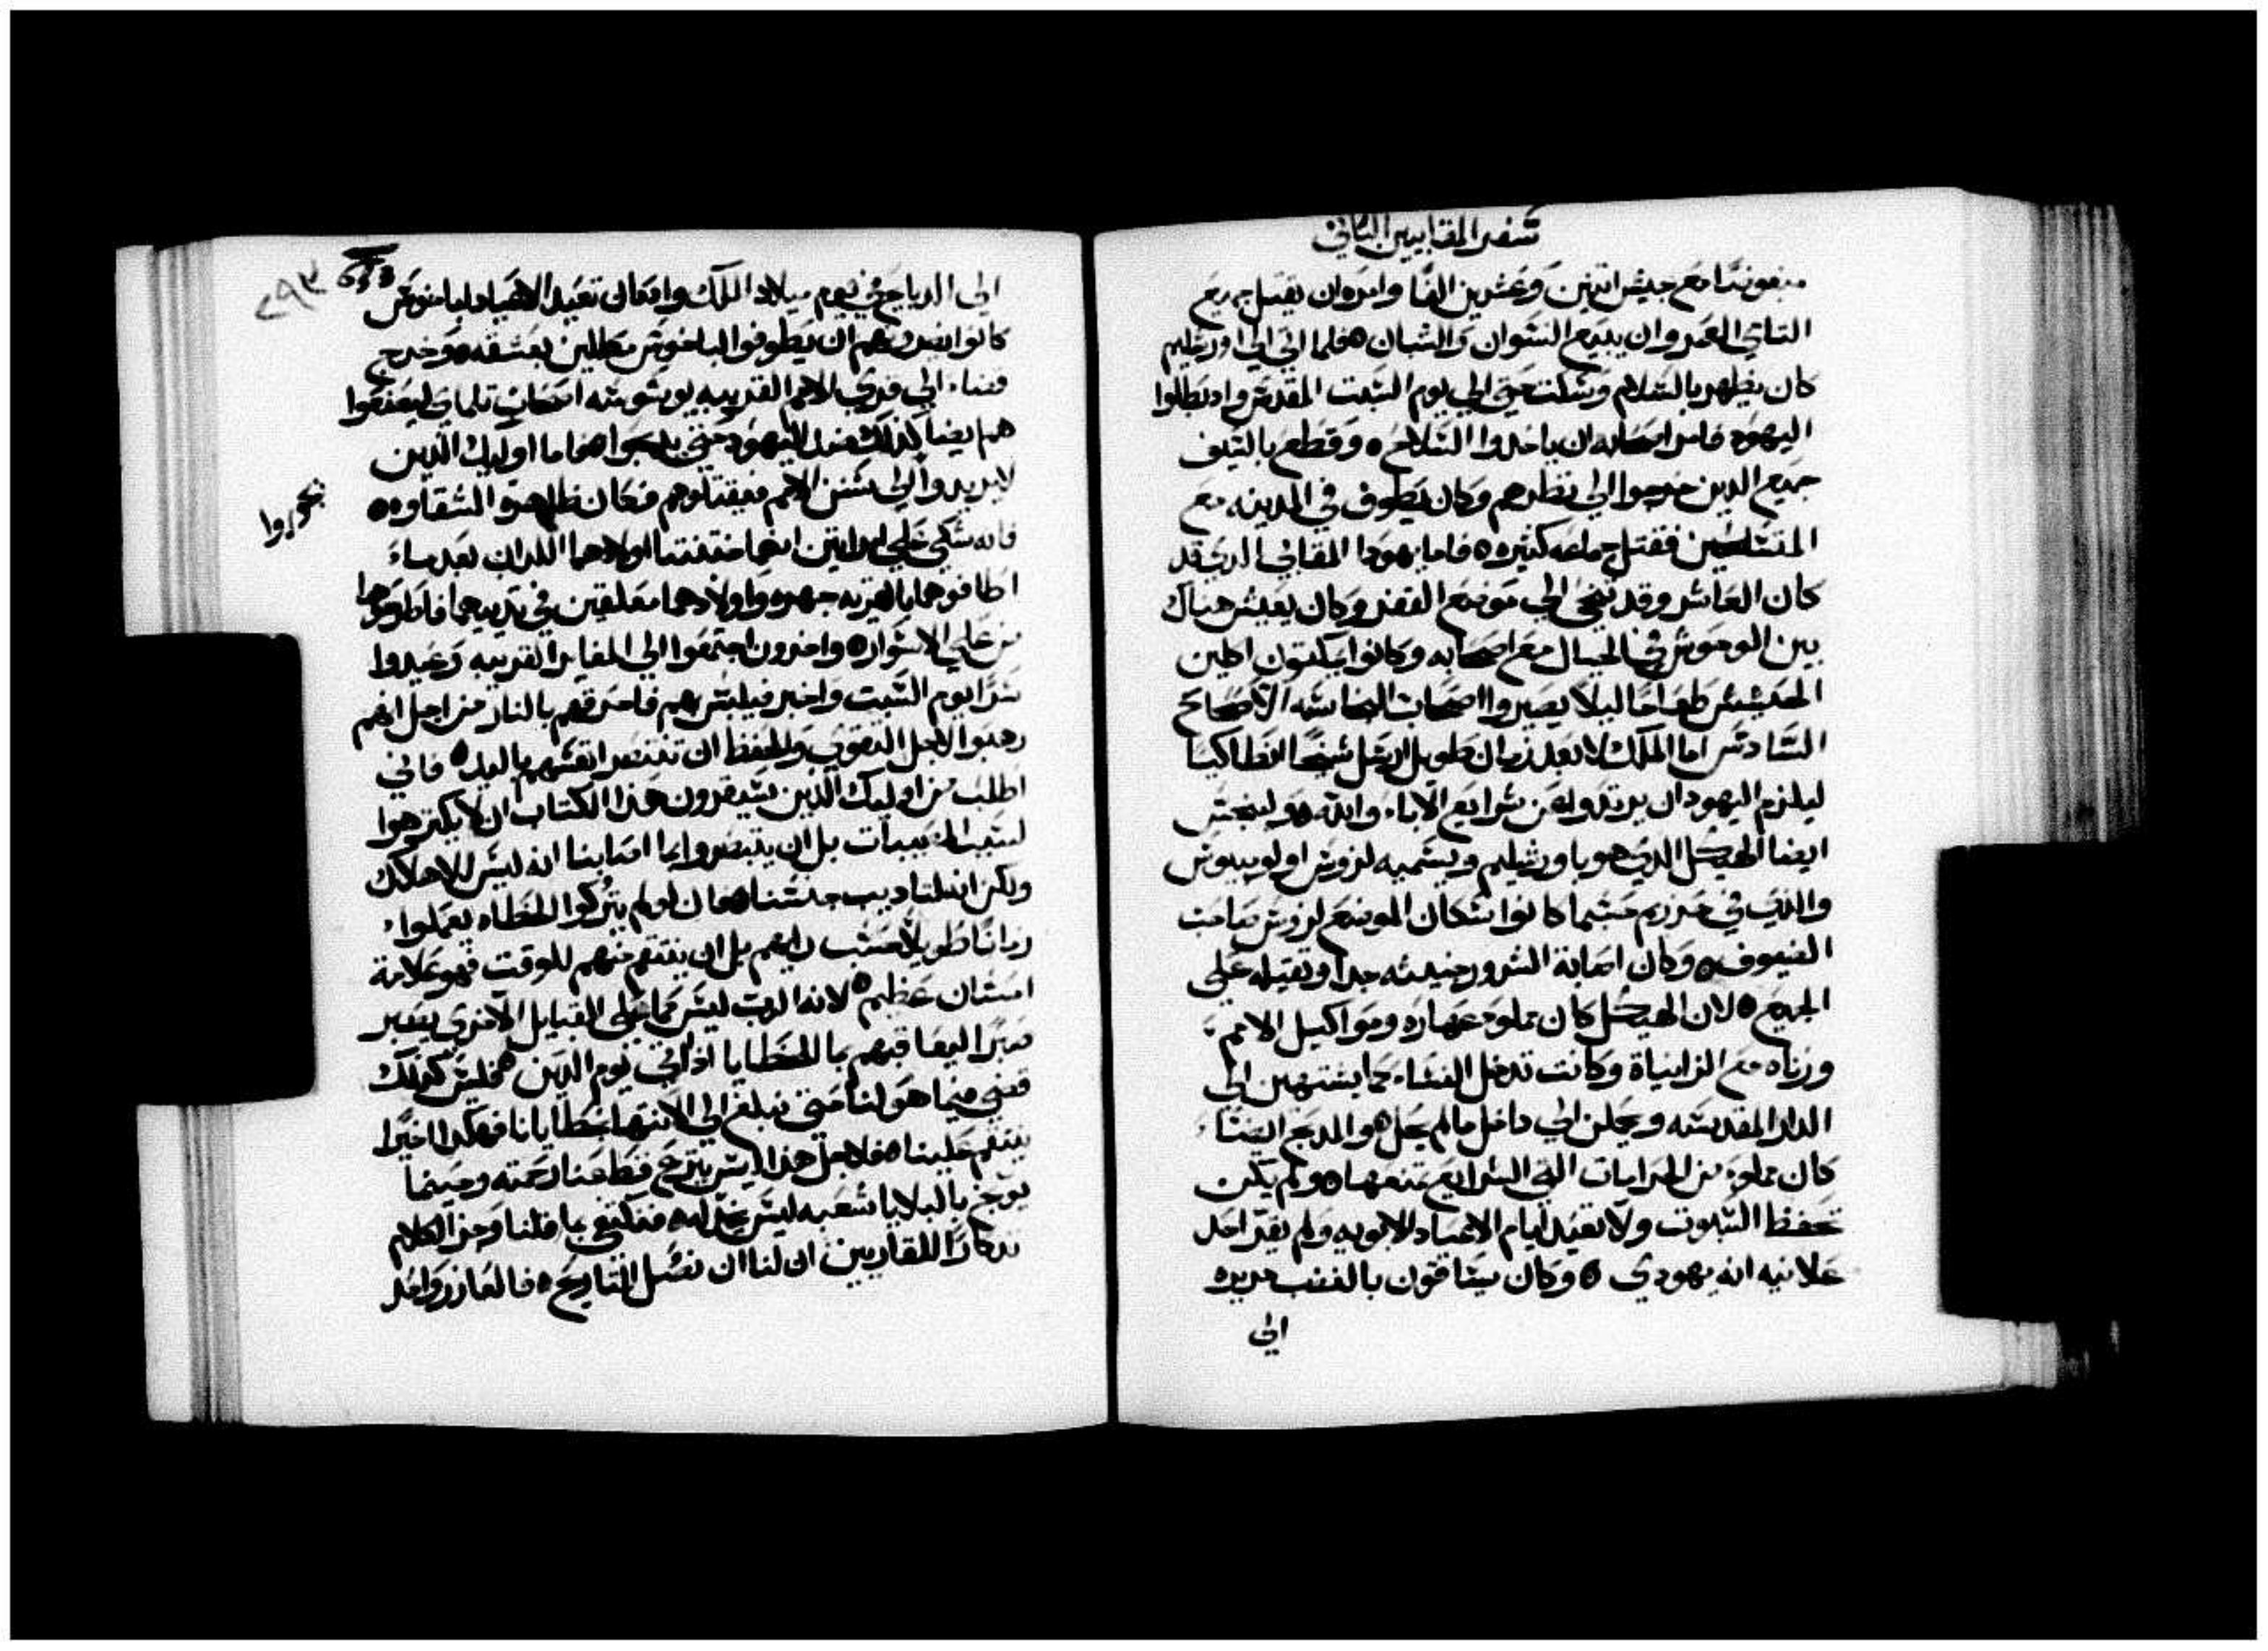 سفر المقابيين الثاني
مبغوضا مع جيش اتنين وعشرين الفا وامره ان يقتل جميع
التامي العمر وان يبيع النسوان والشبان ه فلما اتي الي اورشليم
كان يظهر بالسلام وسكت حتي الي يوم السبت المقدس واد بطلوا
اليهود فامر اصحابه ان ياخدوا السلاح ه وقطع بالسيف
جميع الدين خرجوا الي نظرهم وكان يطوف في المدينه مع
المتسلحين فقتل جماعه كتيره ه فاما يهودا المقابي الدي قد
كان العاشر وقد تنحي الي موضع القفر وكان يعيش هناك
بين الوحوش في الجبال مع اصحابه وكانوا يمكتون اكلين
الحشيش طعاما ليلا يصيروا اصحاب النجاسه الاصحاح
السادس اما الملك لا بعد زمان طويل ارسل شيخا انطاكيا
ليلزم اليهود ان يرتدوا عن شرايع الاباء والله ه ولينجس
ايضا الهيكل الدي هو باورشليم ويسميه لزوس اولومبيوس
والدي في جرزيم حسبما كانوا سكان الموضع لزوس صاحب
الضيوف ه وكان اصابة الشرور خبيثه جدا وثقيله علي
الجميع ه لان الهيكل كان مملوء عهاره ومواكيل الامم
وزناه مع الزانياة وكانت تدخل النساء كما يشتهين الي
الدار المقدسه ويجلن الي داخل ما لم يحل ه والمدبح ايضا
كان مملوء من الحرامات التي الشرايع تمنعها ه ولم يكن
تحفظ السبوت ولا تعيد ايام الاعياد الابويه ولم يقر احد
علانيه انه يهودي ه وكان يساقون بالغصب مريره
الي
٢٩٣
الي الدبايح في يوم ميلاد الملك وادكان تعيد الاعياد لباخوس
كانوا يضطرهم ان يطوفوا لباخوس مكللين بعشقه ه وخرج
قضاء الي قري الامم القريبه بمشورة اصحاب تلماي ليصنعوا
هم ايضا كدلك ضد اليهود حتي يدبحوا امما اوليك الدين
لا يريدوا الي سنن الامم فيقتلوهم فكان ظاهرة الشقاوه ه
يجوزوا
فانه شكي علي امراتين انهما ختنتا اولادهما اللدان بعد ما
اطافوهما بالمدينه جهره واولادهما معلقين في تدييهما فاطرحوهما
من علي الاسوار ه واخرون اجتمعوا الي المغاير القريبه وعيدوا
سرا يوم السبت واخبر فيلبس بهم فاحرقهم بالنار من اجل انهم
رهبوا لاجل التقوي والحفظ ان تنتصر انفسهم باليد ه فاني
اطلب من اوليك الدين سيقرون هدا الكتاب ان لا يكترهوا
لسبب المصيبات بل ان يتبصروا بما اصابنا انه ليس للاهلاك
ولكن انه لتاديب جنسنا ه فان لم يتركوا الخطاه يعملوا
زمانا طويلا حسب رايهم بل ان ينتقم منهم للوقت فهو علامة
احسان عظيم ه لانه الرب ليس كما علي القبايل الاخري يصبر
صبرا ليعاقبهم بالخطايا اد اتي يوم الدين ه فليس كدلك
قضي فيما هو لنا حتي نبلغ الي الانتها خطايانا فهكدا اخيرا
ينتقم علينا ه فلاجل هدا ليس ينزع قط عنا رحمته وحينما
يوبخ بالبلايا شعبه ليس يخدله ه فنكتفي بما قلنا وجز الكلام
تدكارا للقاريين ان لنا ان نفسل التاريخ ه فالعازر واحد